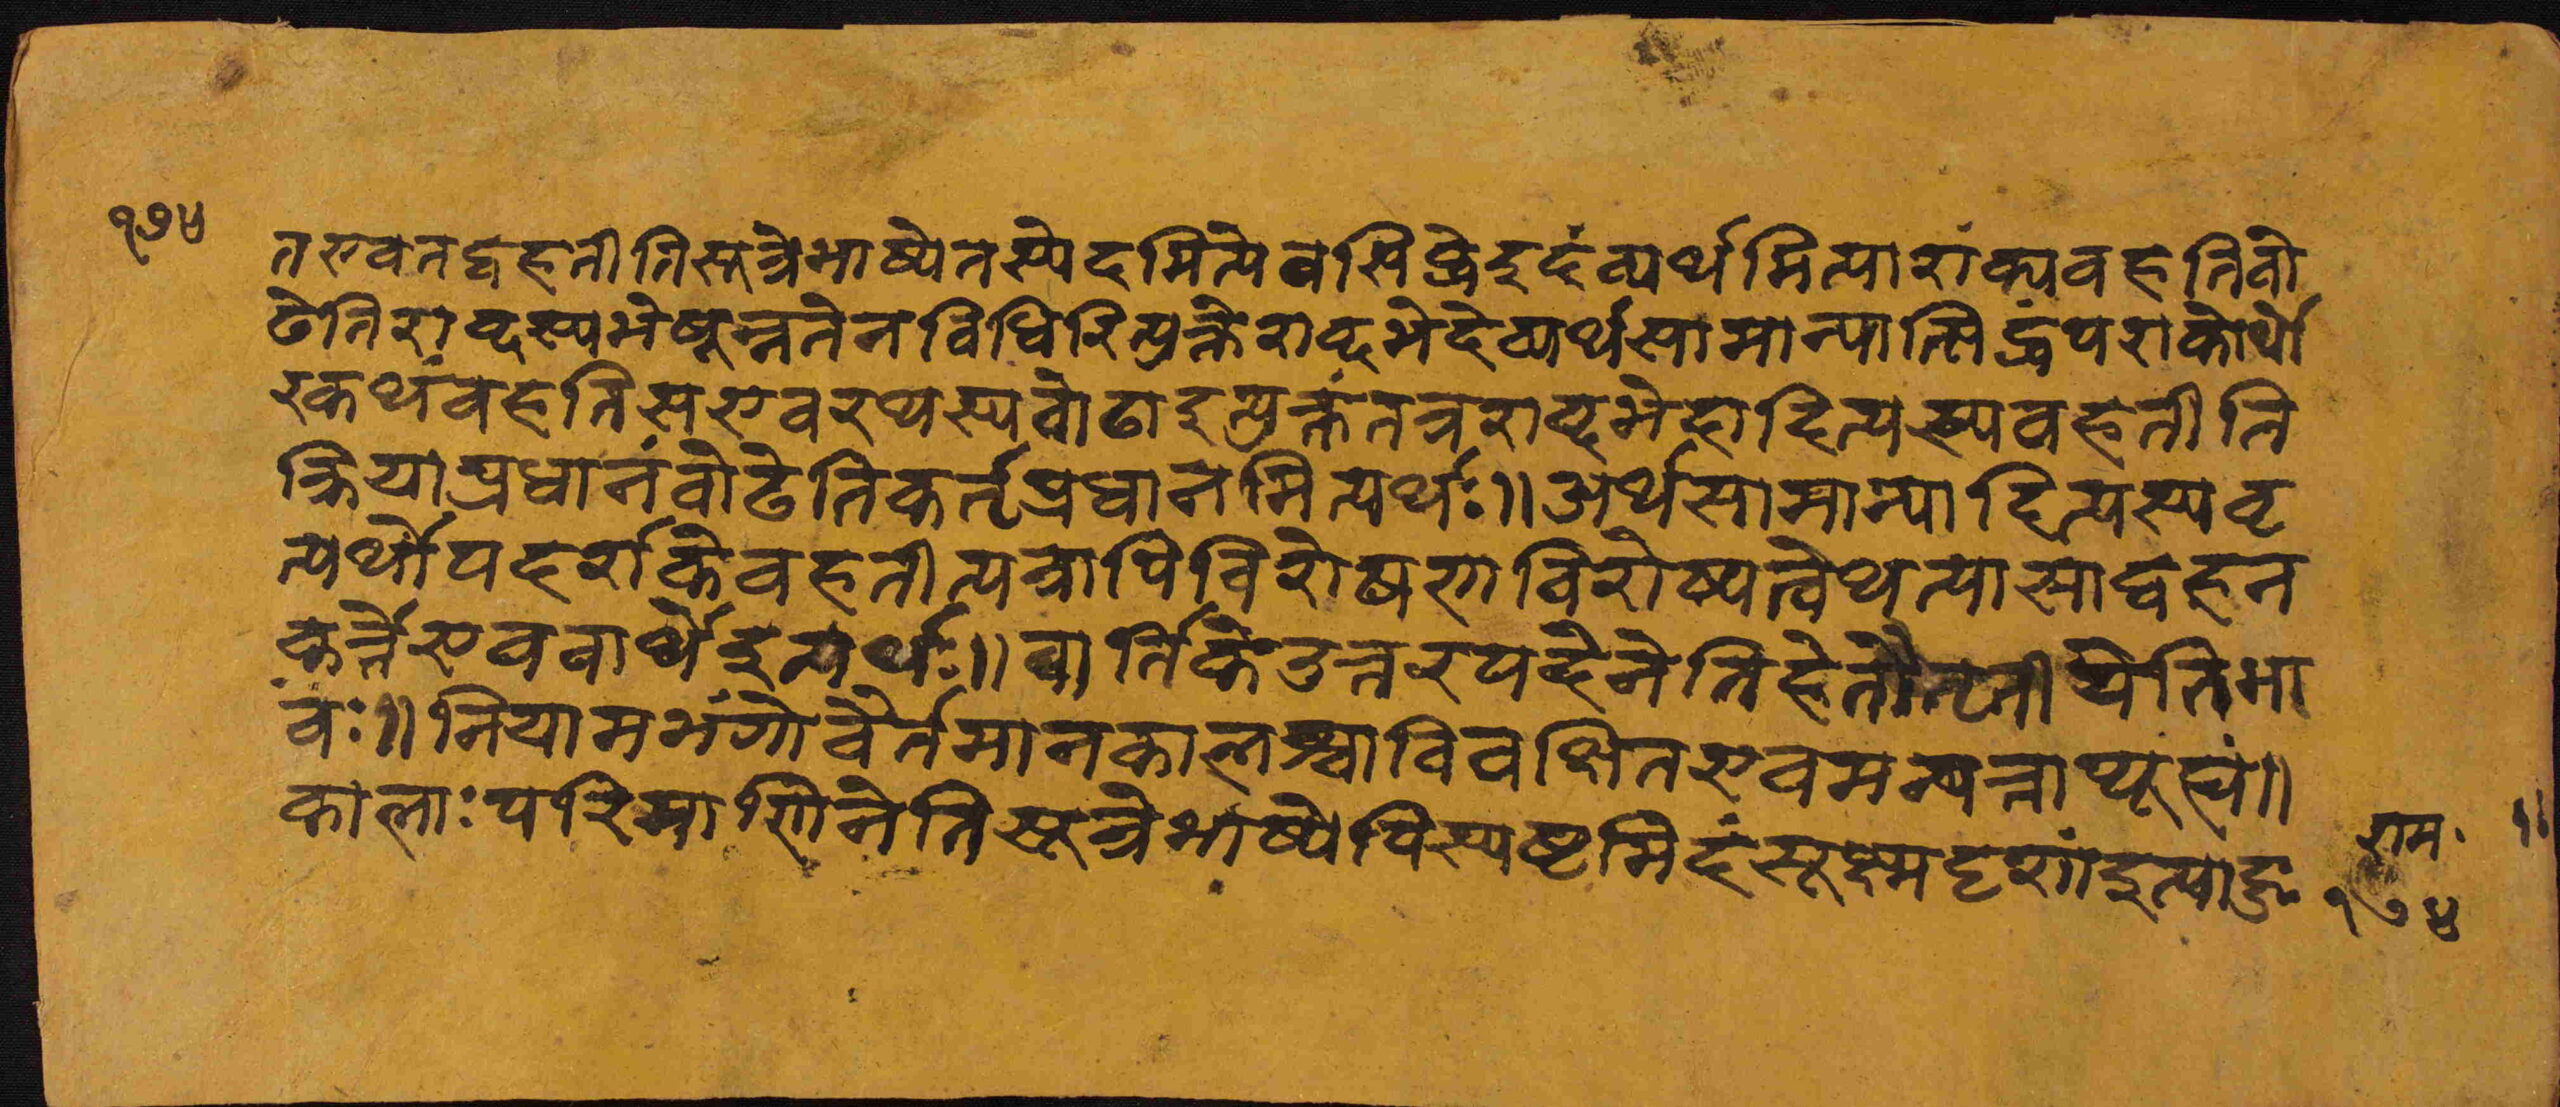 १७५
त एव तद्वहतीति सूत्रे भाष्ये तस्येदमित्येव सिद्धे इदं व्यर्थमित्याशंक्य वहति वो
ढेति शब्दस्य भेषून्नतेन विधिरित्युक्ते शब्दभेदेव्यर्थसामान्यात्सिद्धं पराकोर्थो
रकथं वहति स एव रथस्य वोढा इत्युक्तं तत्र शब्दभेदादित्यस्य वहतीति
क्रियाप्रधानं वोढेति कर्तृप्रधानमित्यर्थः॥ अर्थसामान्यादित्यस्य वृ
त्यर्थोपदर्शके वहतीत्यत्रापि विशेषण विशेष्यत्वेथत्यासाद्वहन
कर्त्तै एव वार्थे इत्यर्थः॥ वार्तिके उत्तरपदेनेति हेतौ तृतीयेति भा
वः॥ नियामभंगो वैर्तमानकालश्चाविवक्षित एवमन्यत्राप्यूह्यं॥
कालाः परिमाणिनेति सूत्रे भाष्येपि स्पष्टमिदं सूक्ष्मदृशां इत्याहुः
राम॰ ॥
१७५